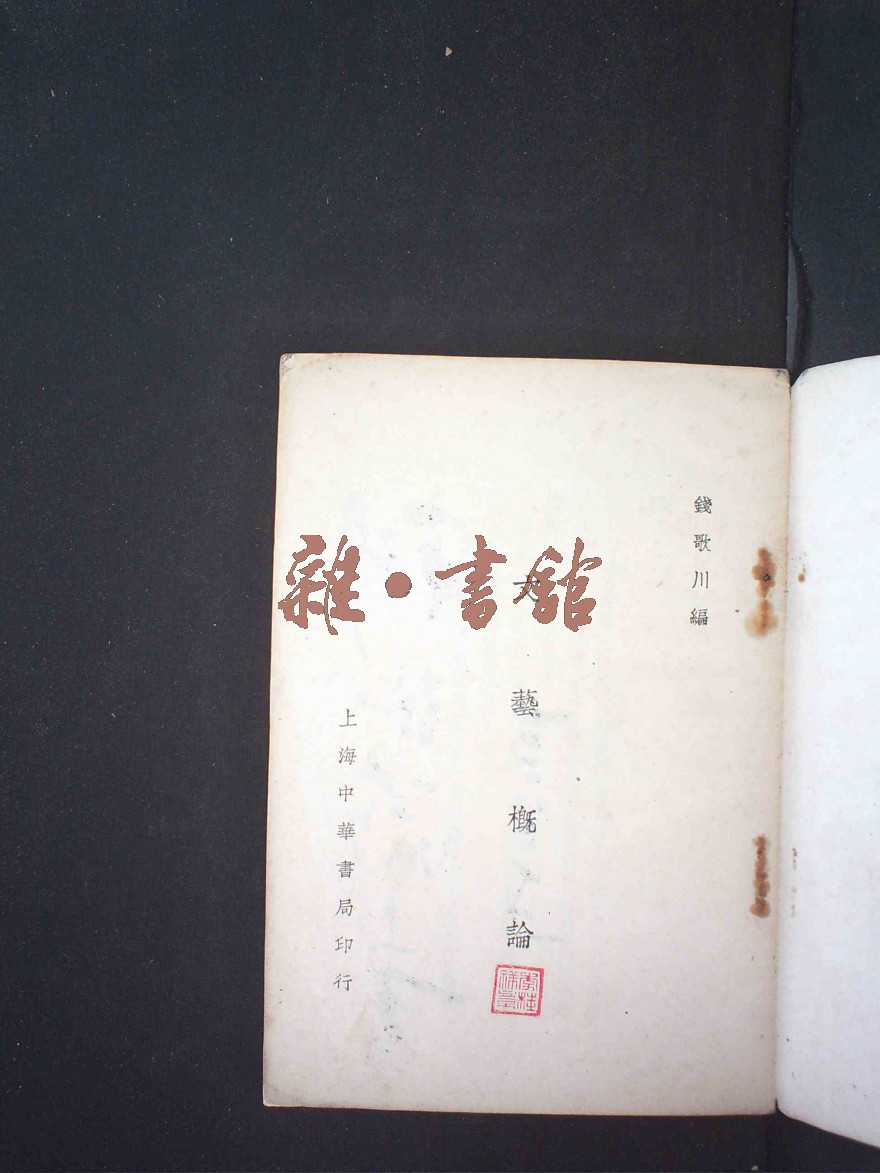 錢歌川編
文藝概論
上海中華書局印行
雜·書館